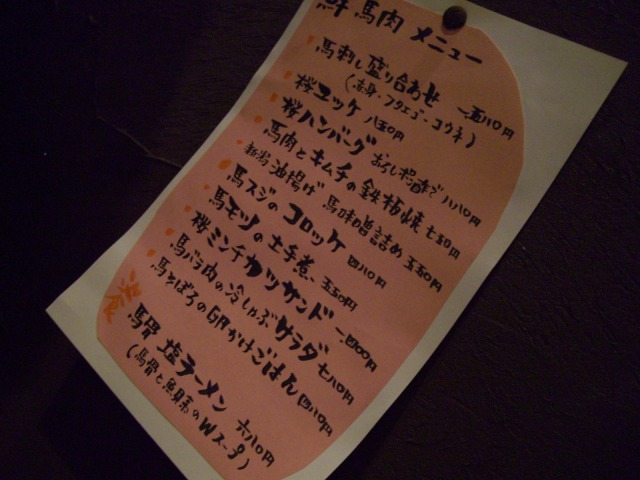 馬肉 メニュー
馬刺し盛り合わせ 一五八〇円
(赤身・フタエゴ・コウネ)
桜ユッケ 八五〇円
桜ハンバーグ おろしポン酢で 八八〇円
馬肉とキムチの鉄板焼 七五〇円
新潟油揚げ 馬味噌詰め 五五〇円
馬スジのコロッケ 四八〇円
馬モツの土手煮 五五〇円
桜ミンチカツサンド 一四〇〇円
馬バラ肉の冷しゃぶサラダ 七八〇円
馬そぼろのGPかけごはん 四八〇円
馬骨 塩ラーメン 六八〇円
(馬骨と魚貝系のWスープ)